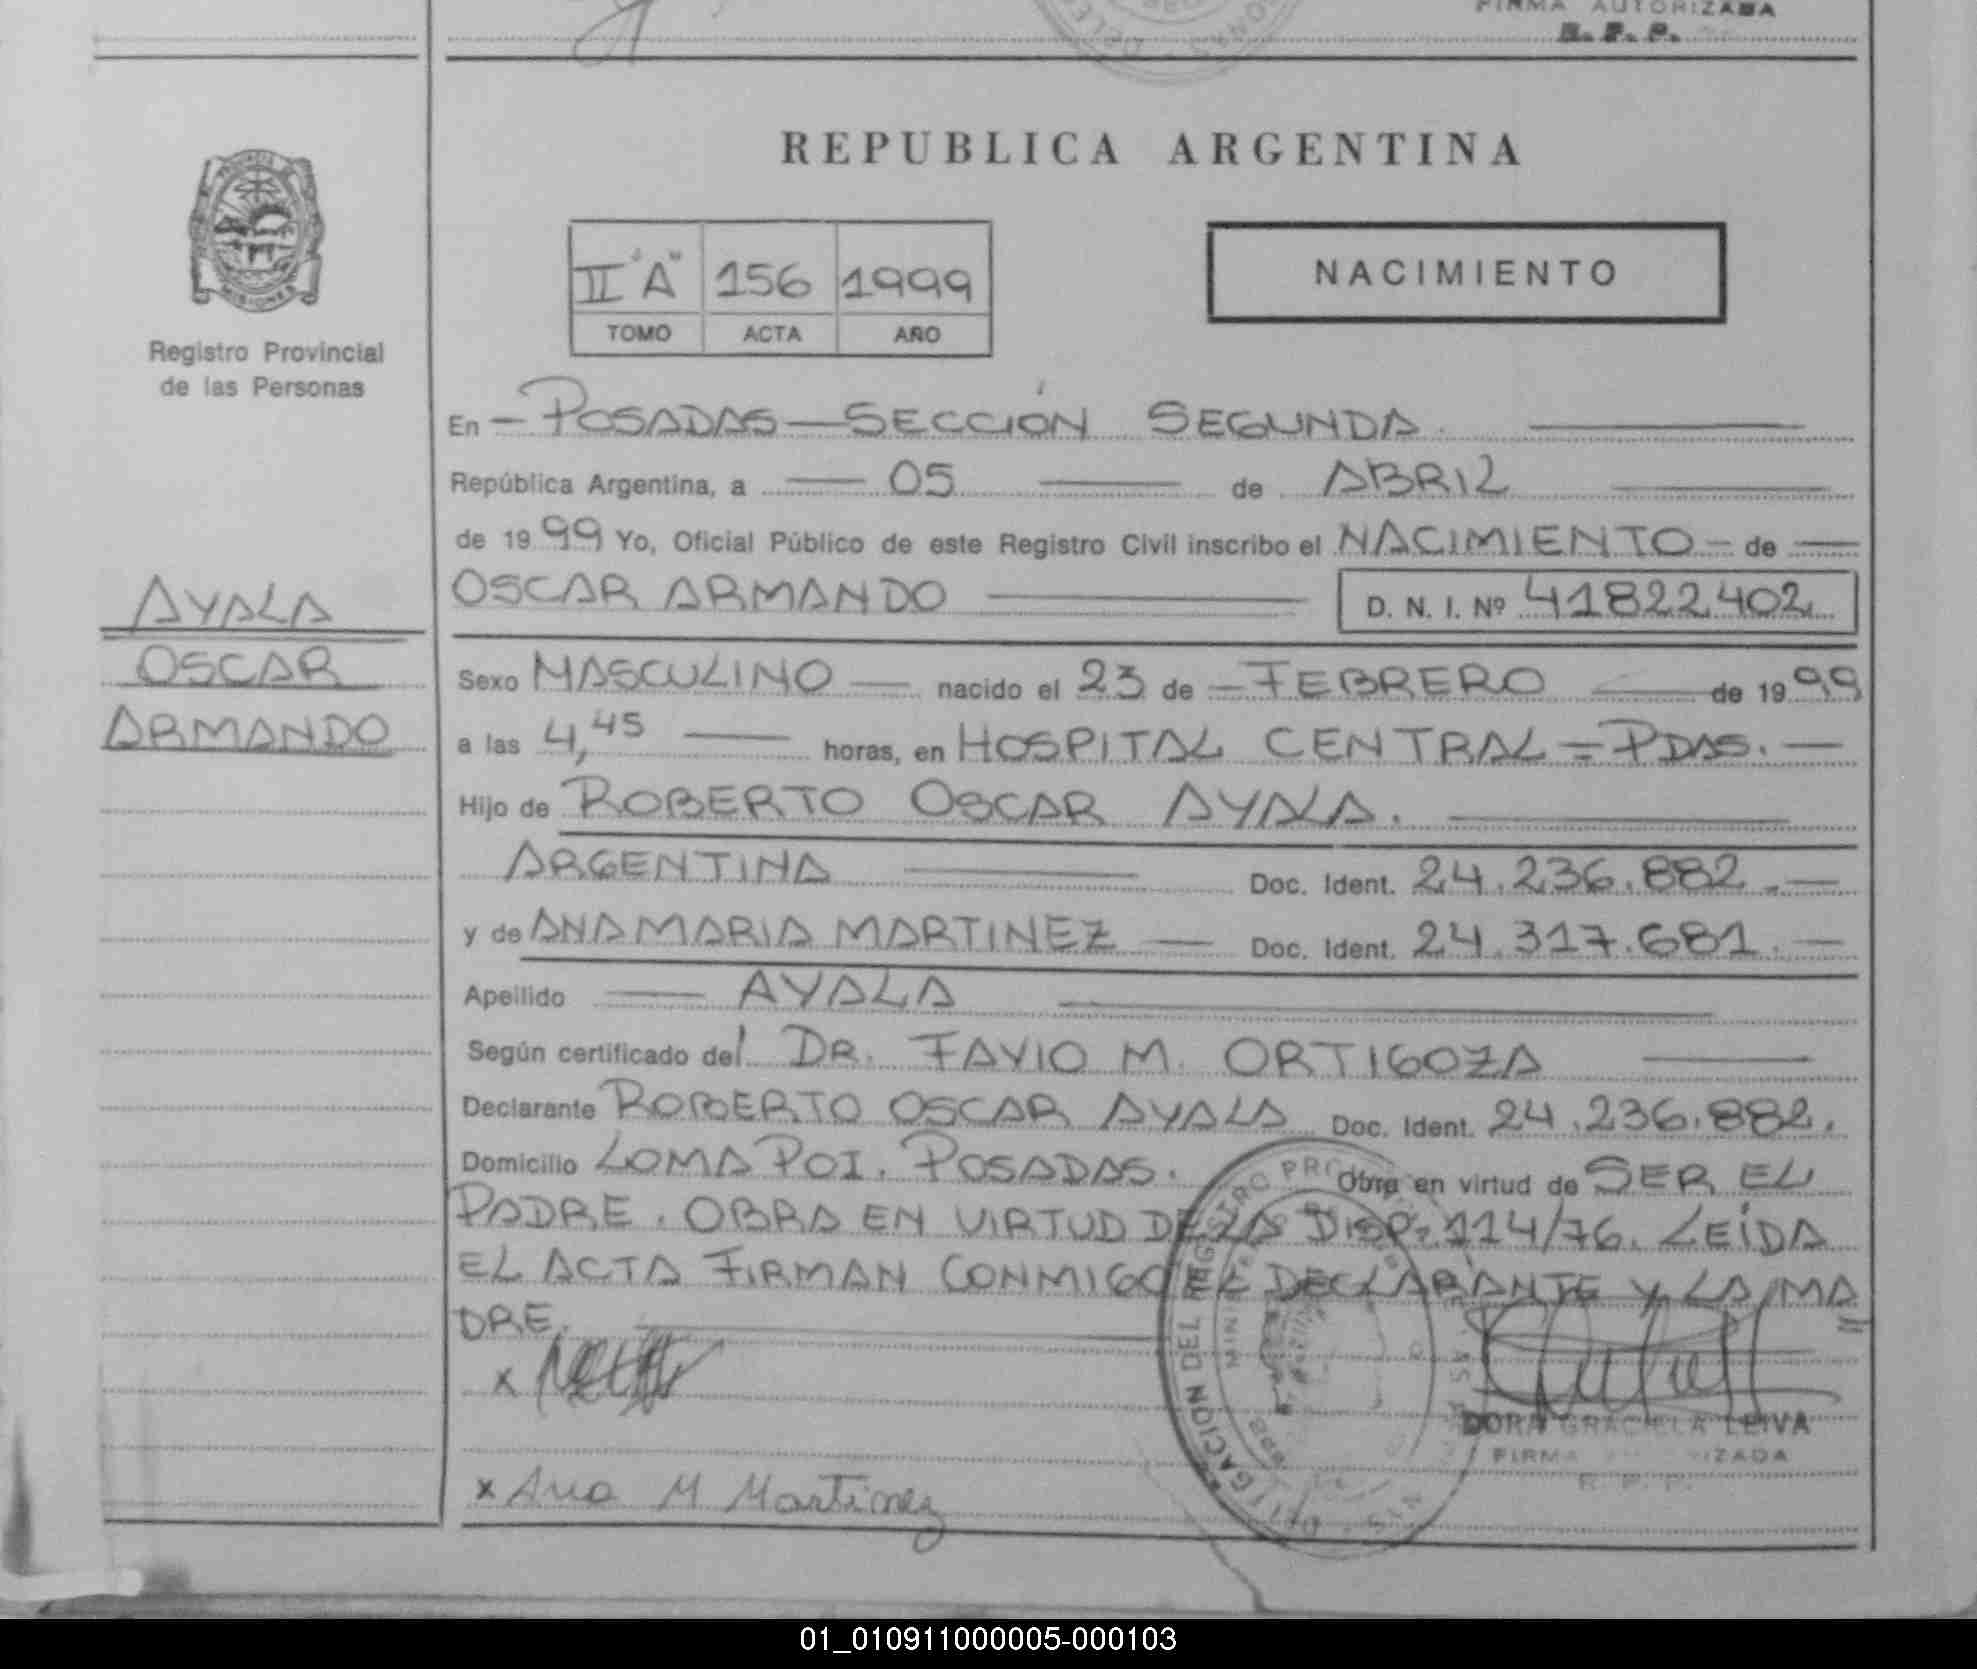 FIRMA AUTORIZADA
R. P. P.
REPUBLICA ARGENTINA
MISIONES
Registro Provincial
de las Personas
II "A" 156 1999
TOMO ACTA AÑO
NACIMIENTO
En - POSADAS - SECCIÓN SEGUNDA
República Argentina, a 05 de ABRIL
de 1999 Yo, Oficial Público de este Registro Civil inscribo el NACIMIENTO - de
OSCAR ARMANDO D. N. I. Nº 41822402
AYALA
OSCAR
ARMANDO
Sexo MASCULINO nacido el 23 de FEBRERO de 1999
a las 4,45 horas, en HOSPITAL CENTRAL = PDAS.
Hijo de ROBERTO OSCAR AYALA.
ARGENTINA Doc. Ident. 24.236.882.
y de ANA MARIA MARTINEZ Doc. Ident. 24.317.681.
Apellido AYALA
Según certificado del DR. FAVIO M. ORTIGOZA
Declarante ROBERTO OSCAR AYALA Doc. Ident. 24.236.882.
Domicilio LOMA POI. POSADAS. Obra en virtud de SER EL
PADRE. OBRA EN VIRTUD DE LA DISP. 114/76. LEÍDA
EL ACTA FIRMAN CONMIGO EL DECLARANTE Y LA MA
DRE.
x
DORA GRACIELA LEIVA
FIRMA AUTORIZADA
R. P. P.
x Ana M Martinez
01_010911000005-000103